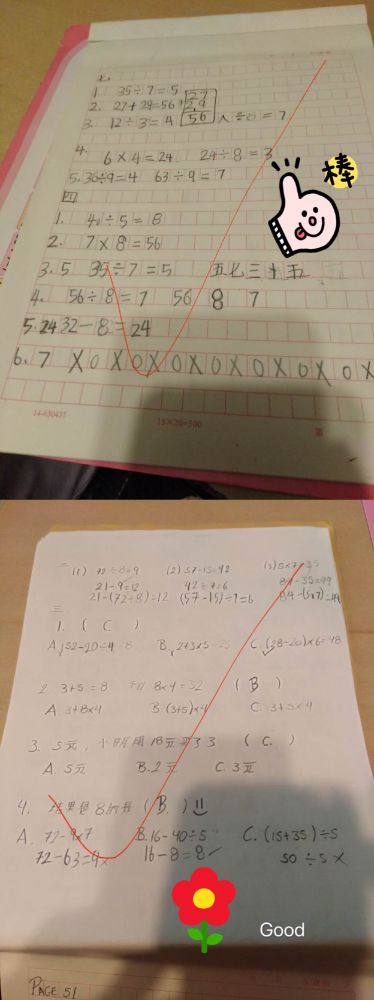 1. 35÷7=5
2. 27+29=56 27 2,9 56
3. 12÷3=4 人÷8=7
4.
6×4=24 24÷8=3
5. 36÷9=4 63÷9=7
四
1. 40÷5=8
2. 7×8=56
3. 5 35÷7=5 五七三十五
4. 56÷8=7 56 8 7
5. 24 32-8=24
6. 7 X O X O X O X O X O X O X O X
棒
14-630437
15×20=300
第
二 (1) 72÷8=9 (2) 57-15=42 (3) 5×7=35
21-9=12 42÷7=6 84-35=49
21-(72÷8)=12 (57-15)÷7=6 84-(5×7)=49
三
1. ( C )
A. 52-20÷4=8 B. 2+3×5=25 C. (28-20)×6=48
2. 3+5=8 和 8×4=32 ( B )
A. 3+8×4 B. (3+5)×4 C. 3+5×4
3. 5元, 小明用18元 33 ( C. )
A. 5元 B. 2元 C. 3元
4. 结果是8的是 ( B. )
A. 72-9×7 B. 16-40÷5 C. (15+35)÷5
72-63=9× 16-8=8✓ 50÷5 ×
Good
PAGE 51